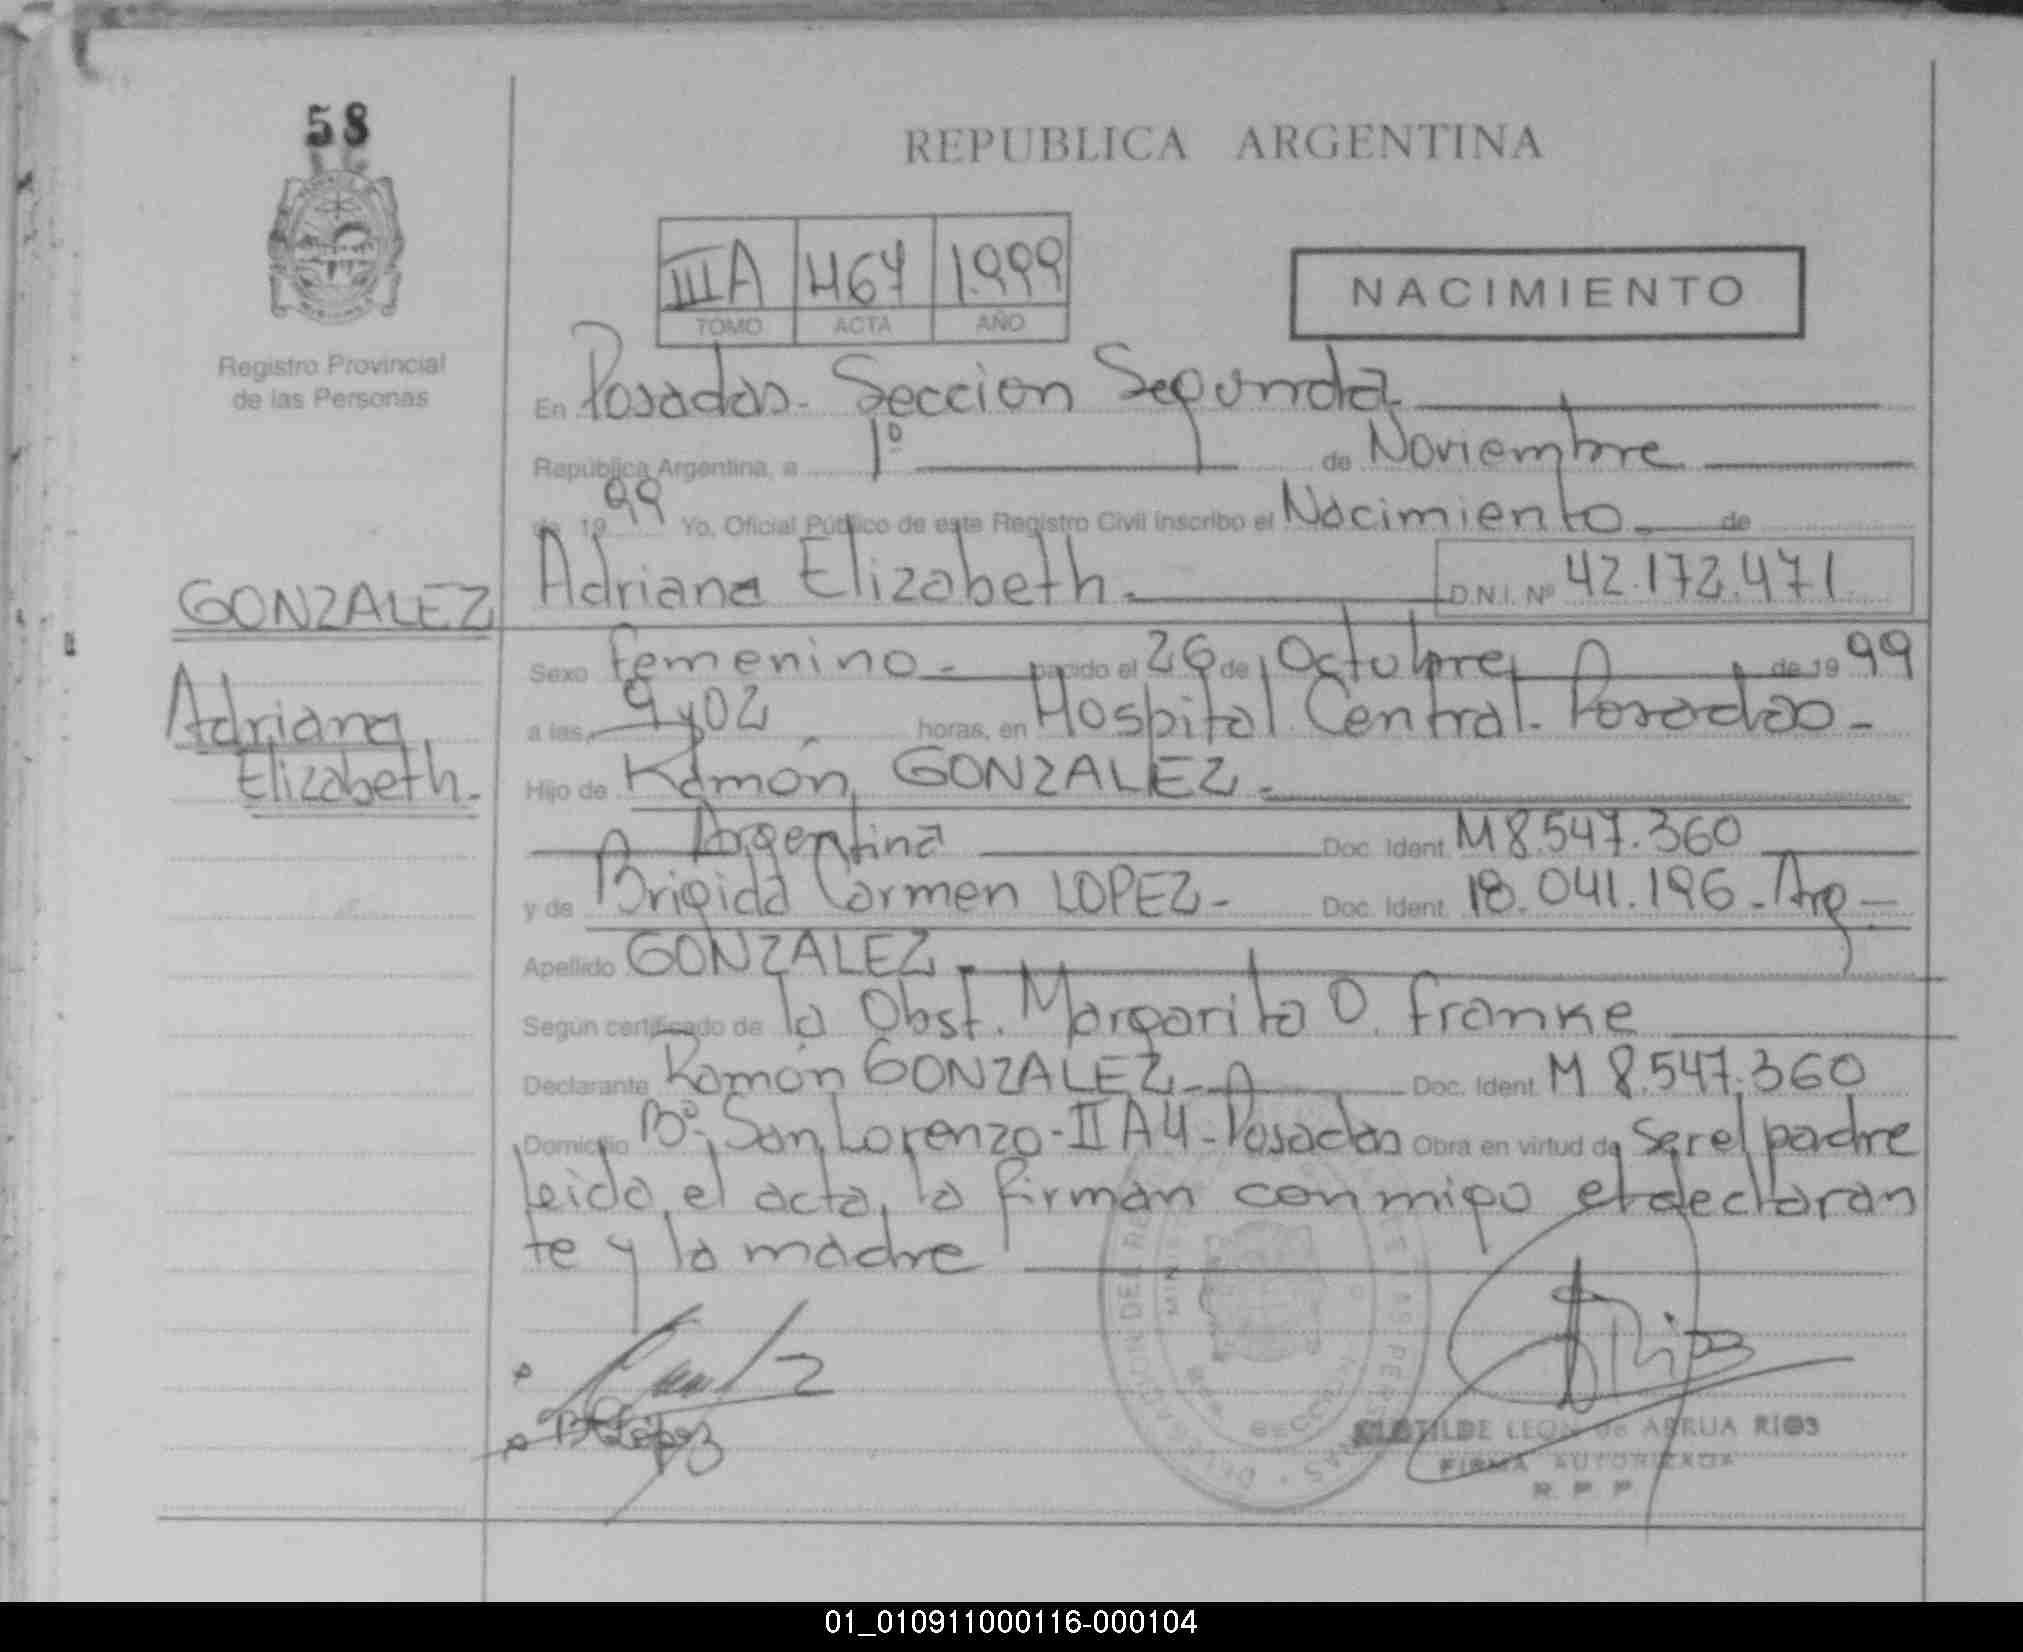 58
REPUBLICA ARGENTINA
IIIA 467 1.999
TOMO ACTA AÑO
NACIMIENTO
Registro Provincial
de las Personas
En Posadas - Seccion Segunda
República Argentina, a 1º de Noviembre
de 1999 Yo, Oficial Público de este Registro Civil inscribo el Nacimiento de
GONZALEZ
Adriana
Elizabeth-
Adriana Elizabeth. D.N.I. Nº 42.172.471
Sexo femenino - nacido el 26 de Octubre de 1999
a las 9 y 02 horas, en Hospital Central - Posadas -
Hijo de Ramón GONZALEZ -
Argentina Doc. Ident. M 8.547.360
y de Brigida Carmen LOPEZ - Doc. Ident. 18.041.196 - Arg -
Apellido GONZALEZ -
Según certificado de la Obst. Margarita O. Franke
Declarante Ramón GONZALEZ - Doc. Ident. M 8.547.360
Domicilio Bº San Lorenzo - II A4 - Posadas Obra en virtud de ser el padre
leida el acta, la firman conmigo el declaran
te y la madre
CLOTILDE LEON de ARRUA RIOS
FIRMA AUTORIZADA
R P P
01_010911000116-000104